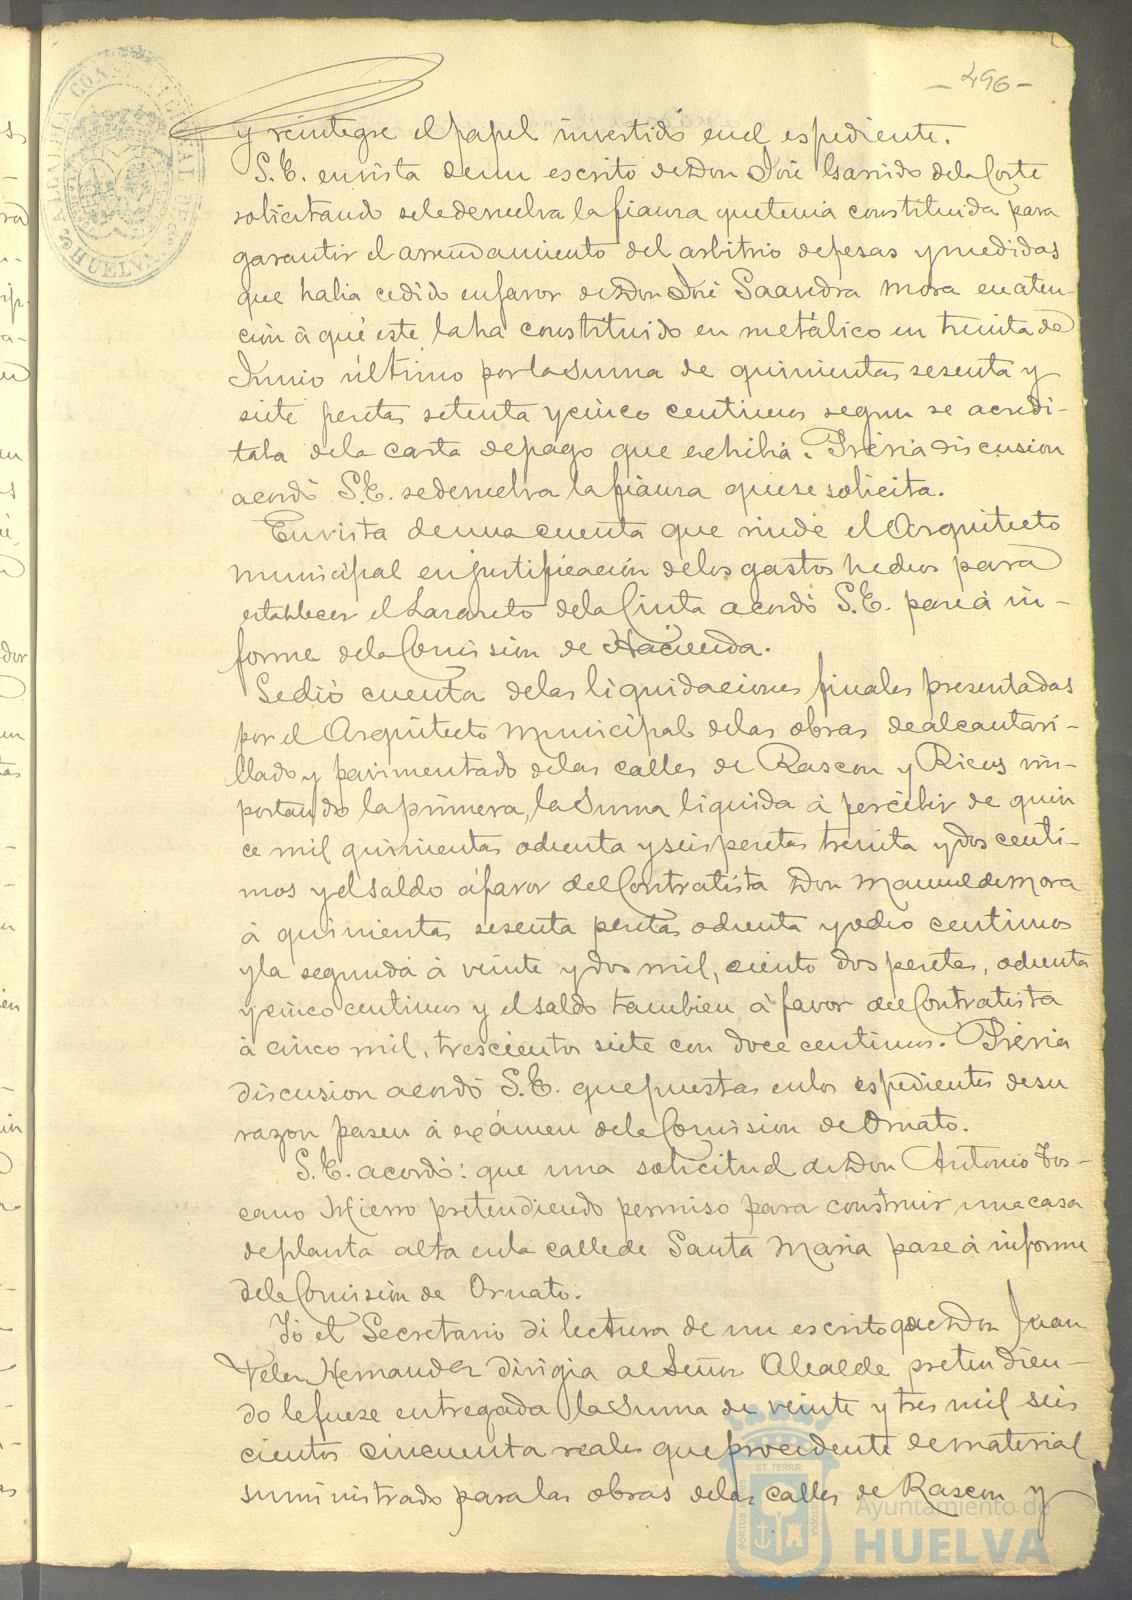 - 496 -
ALCALDIA CONSTITUCIONAL DE HUELVA
y reintegre el papel invertido en el espediente.
S.E. en vista de un escrito de Don José Garrido de la Corte
solicitando se le devuelva la fianza que tenia constituida para
garantir el arrendamiento del arbitrio de pesas y medidas
que habia cedido en favor de Don José Saavedra Mora en aten-
cion á que este la ha constituido en metálico en treinta de
Junio último por la suma de quinientas sesenta y
siete pesetas setenta y cinco centimos segun se acredi-
taba de la carta de pago que echibia. Prévia discusion
acordó S.E. se devuelva la fianza que se solicita.
En vista de una cuenta que rinde el Arquitecto
municipal en justificacion de los gastos hechos para
establecer el Lazareto de la Cinta acordó S.E. pase á in-
forme de la Comision de Hacienda.
Se dió cuenta de las liquidaciones finales presentadas
por el Arquitecto Municipal de las obras de alcantari-
llado y pavimentado de las calles de Rascon y Ricos im-
portando la primera, la suma liquida á percibir de quin
ce mil quinientas ochenta y seis pesetas treinta y dos centi-
mos y el saldo á favor del Contratista Don Manuel de Mora
á quinientas sesenta pesetas ochenta y ocho centimos
y la segunda á veinte y dos mil, ciento dos pesetas, ochenta
y cinco centimos y el saldo tambien á favor del Contratista
á cinco mil, trescientos siete con doce centimos. Prévia
discusion acordó S.E. que puestas en los espedientes de su
razon pasen á exámen de la Comision de Ornato.
S.E. acordó: que una solicitud de Don Antonio Tos-
cano Hierro pretendiendo permiso para construir una casa
de planta alta en la calle de Santa Maria pase á informe
de la Comision de Ornato.
Yó el Secretario di lectura de un escrito que Don Juan
Velez Hernandez dirigia al Señor Alcalde pretendien-
do le fuese entregada la suma de veinte y tres mil seis
cientos cincuenta reales que procedente de material
suministrado para las obras de las calles de Rascon y
Ayuntamiento de
HUELVA